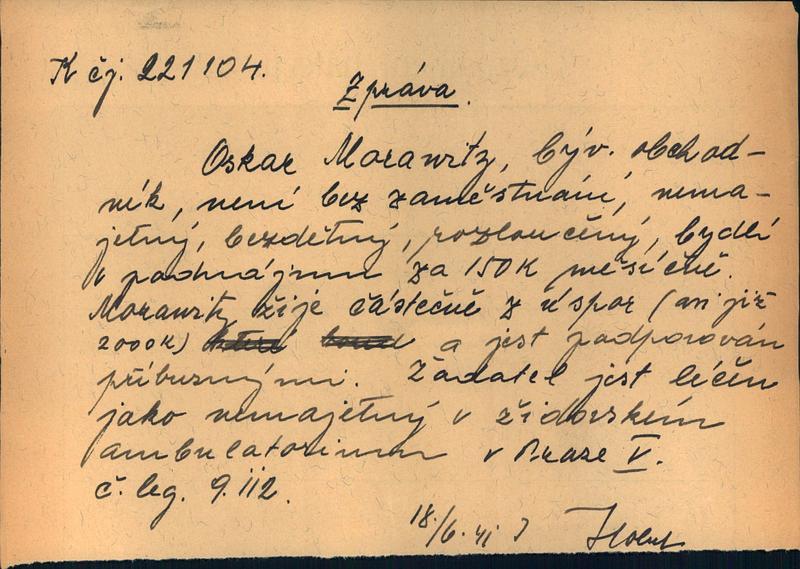 K čj. 221104.
Zpráva.
Oskar Morawitz, býv. obchod-
ník, není bez zaměstnání, nema-
jetný, bezdětný, rozloučený, bydlí
v podnájmu za 150K měsíčně.
Morawitz žije částečně z úspor (asi již
2000K) a jest podporován
příbuznými. Žadatel jest léčen
jako nemajetný v židovském
ambulatorium v Praze V.
č. leg. 9.112.
18./6. 41